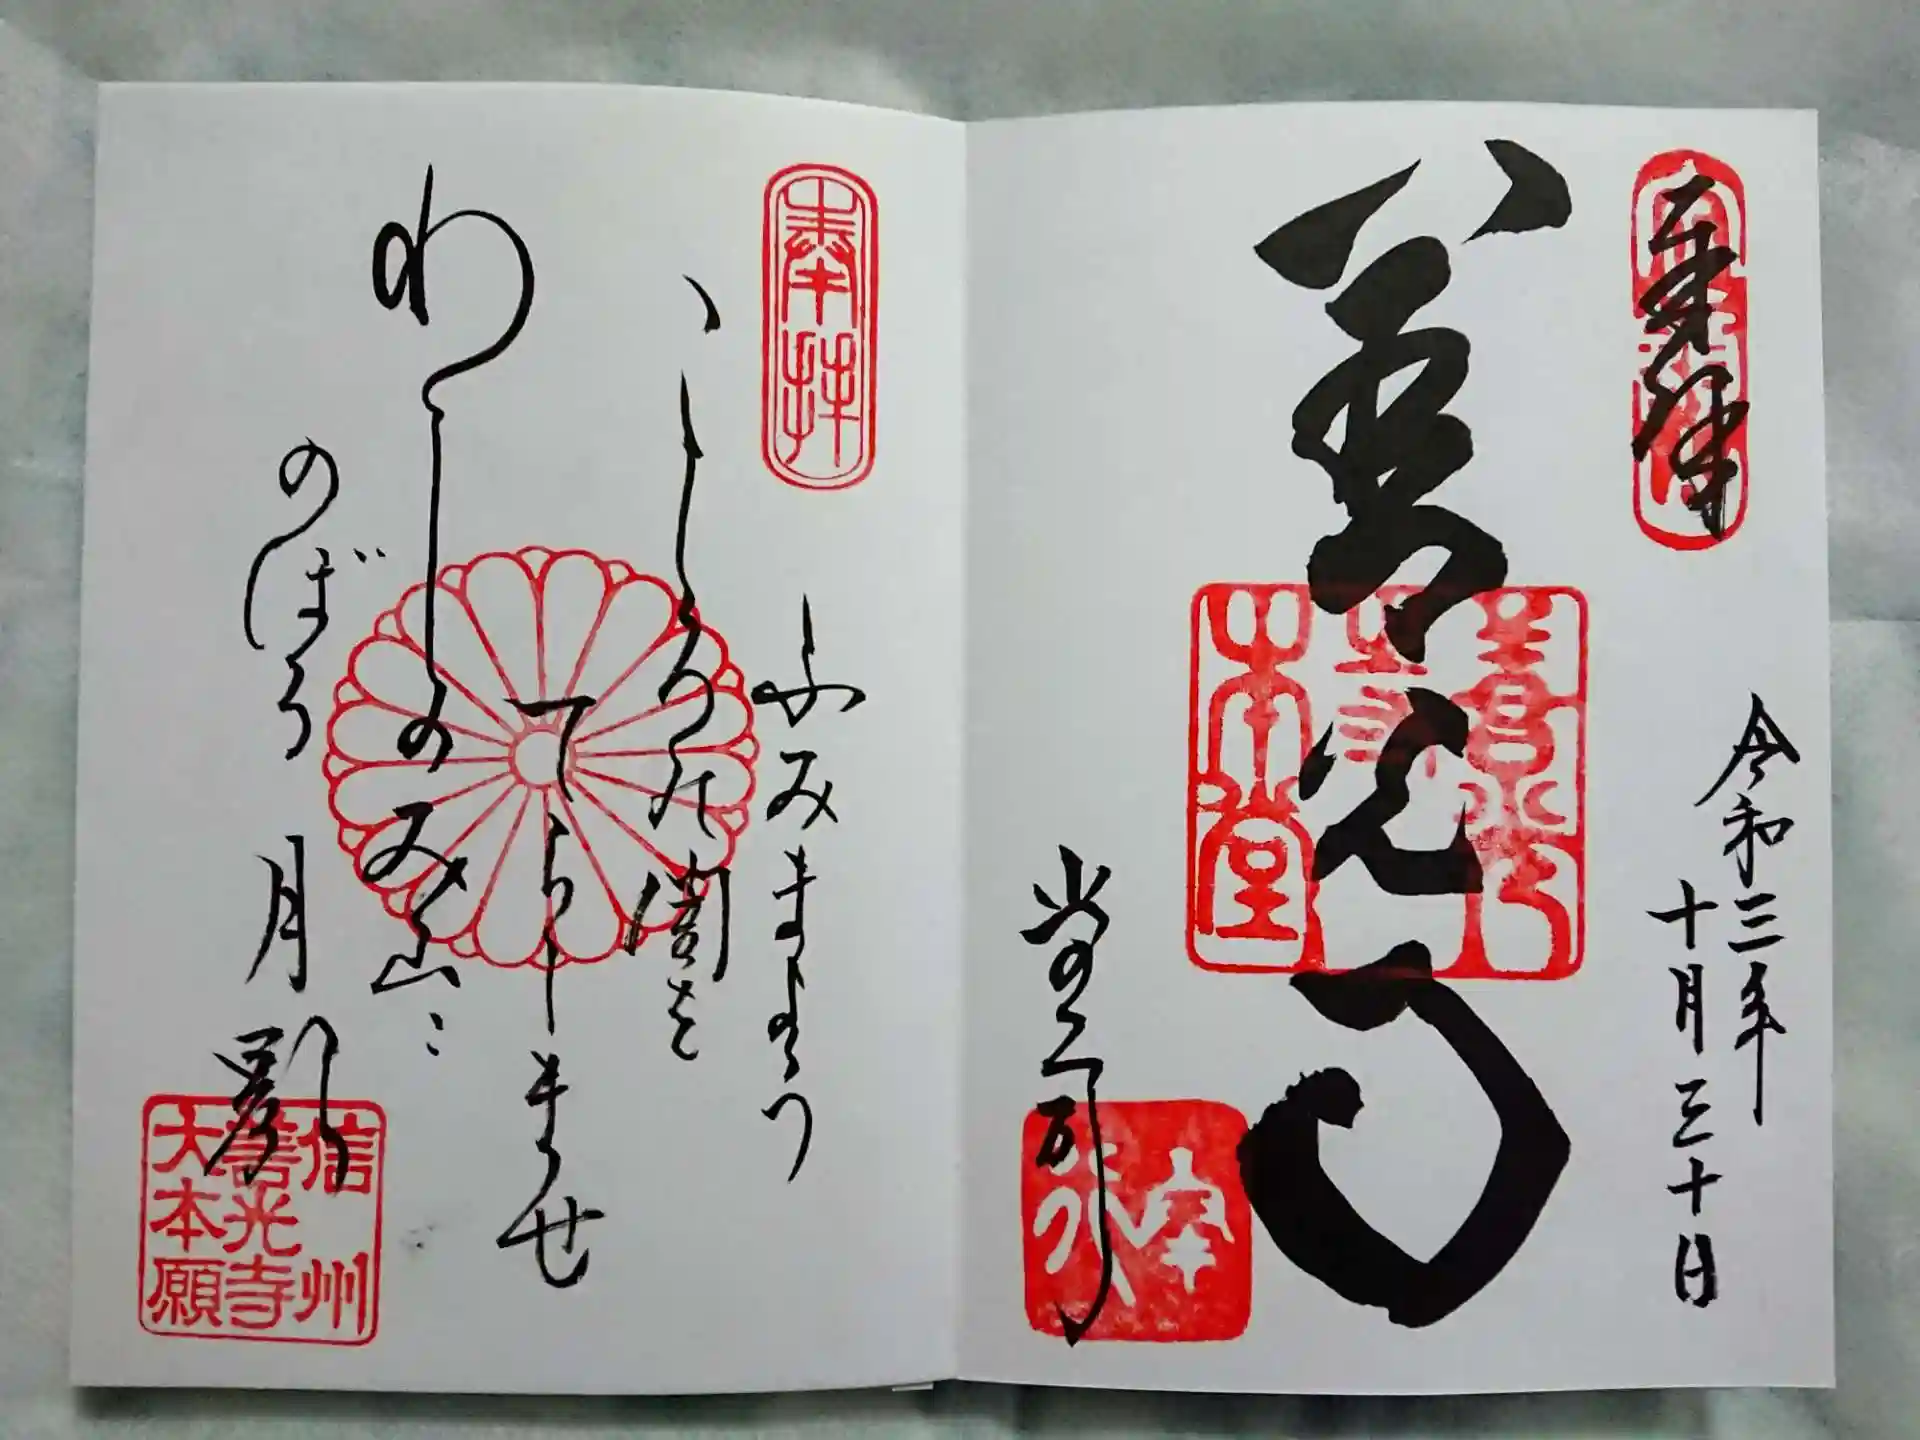 奉拝
令和三年
十月三十日
善光寺
善光寺
本堂
奉拝
ふみまよう
こころの闇を
てらしませ
わしのみ山に
のぼる月影
信州
善光寺
大本願